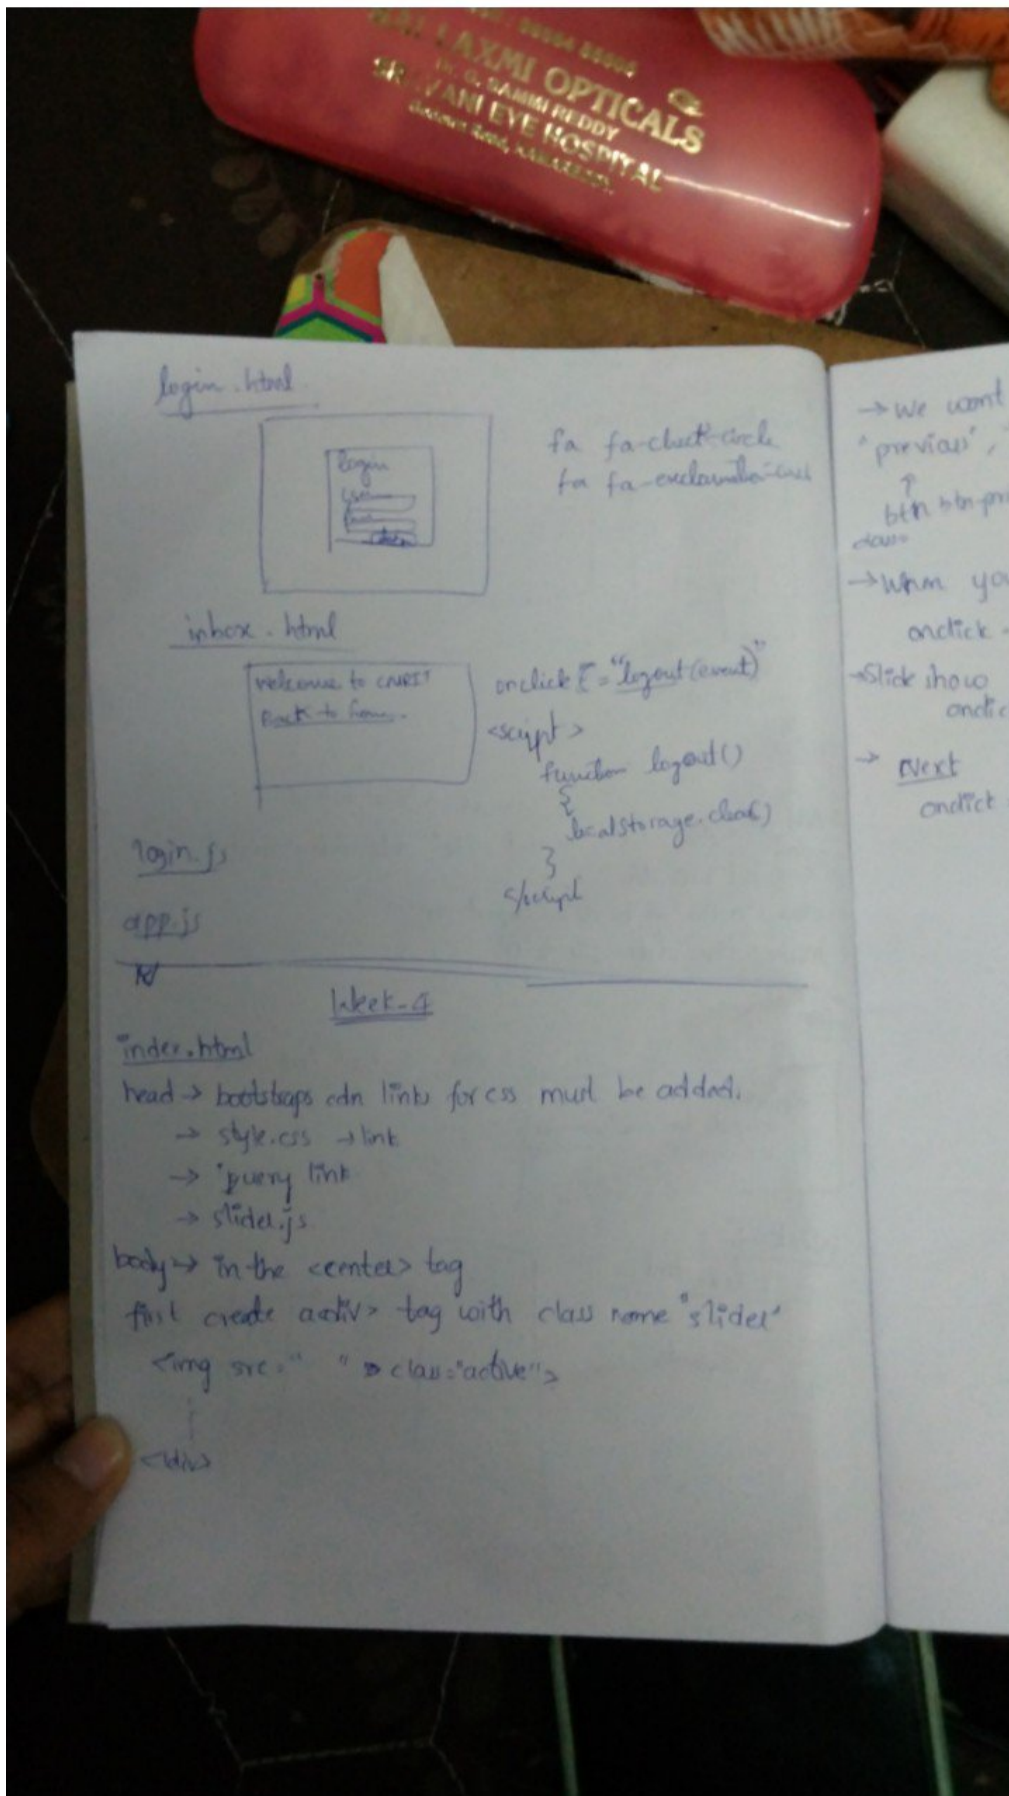 LAXMI OPTICALS
Dr. G. RAMMI REDDY
EYE HOSPITAL
login.html
login
fa fa-check-circle
fa fa-exclamation-circle
inbox.html
Welcome to
Back to home.
onclick = "logout(event)"
<script>
function logout()
{
localstorage.clear()
}
</script
login.js
app.js
Week-4
index.html
head → bootstraps cdn links for css must be added.
→ style.css → link
→ jquery link
→ slider.js
body → in the <center> tag
first create a <div> tag with class name "slider"
<img src=" " class="active">
</div>
→ We want
'previous',
↑
btn btn-pri
class
→ When you
onclick
→ Slide show
onclic
→ Next
onclick